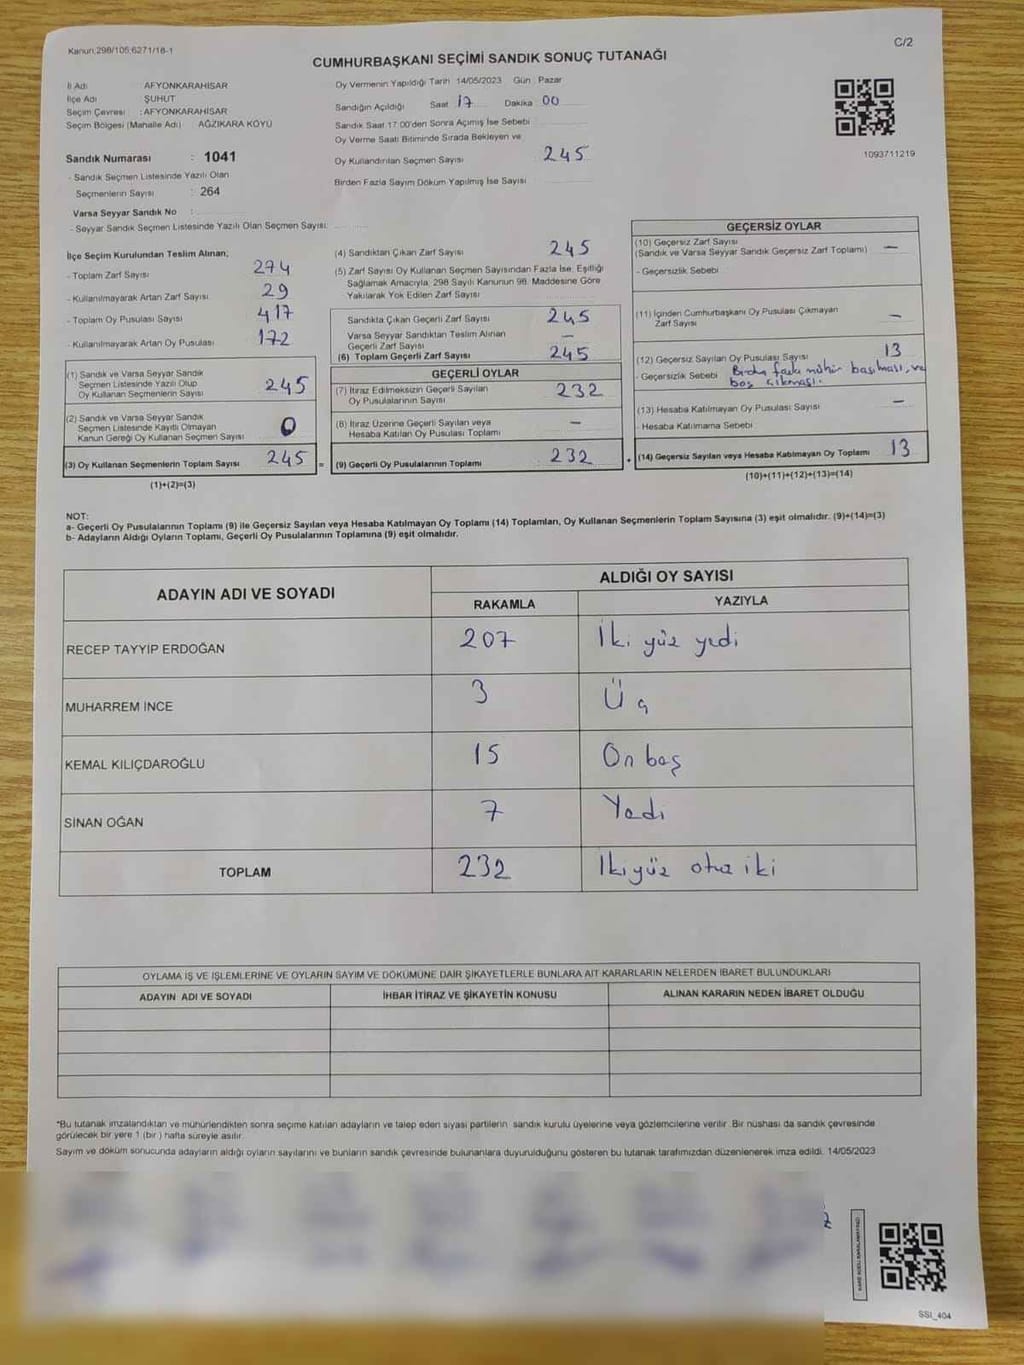 Kanun.298/105;6271/18-1
C/2
CUMHURBAŞKANI SEÇİMİ SANDIK SONUÇ TUTANAĞI
İl Adı : AFYONKARAHİSAR
İlçe Adı : ŞUHUT
Seçim Çevresi : AFYONKARAHİSAR
Seçim Bölgesi (Mahalle Adı) : AĞZIKARA KÖYÜ
Sandık Numarası : 1041
- Sandık Seçmen Listesinde Yazılı Olan
Seçmenlerin Sayısı : 264
Varsa Seyyar Sandık No :
- Seyyar Sandık Seçmen Listesinde Yazılı Olan Seçmen Sayısı:
Oy Vermenin Yapıldığı Tarih 14/05/2023 Gün Pazar
Sandığın Açıldığı Saat 17 Dakika 00
Sandık Saat 17:00'den Sonra Açılmış İse Sebebi
Oy Verme Saati Bitiminde Sırada Bekleyen ve
Oy Kullandırılan Seçmen Sayısı 245
Birden Fazla Sayım Döküm Yapılmış İse Sayısı
1093711219
İlçe Seçim Kurulundan Teslim Alınan;
- Toplam Zarf Sayısı 274
- Kullanılmayarak Artan Zarf Sayısı 29
- Toplam Oy Pusulası Sayısı 417
- Kullanılmayarak Artan Oy Pusulası 172
(1) Sandık ve Varsa Seyyar Sandık
Seçmen Listesinde Yazılı Olup
Oy Kullanan Seçmenlerin Sayısı 245
(2) Sandık ve Varsa Seyyar Sandık
Seçmen Listesinde Kayıtlı Olmayan
Kanun Gereği Oy Kullanan Seçmen Sayısı 0
(3) Oy Kullanan Seçmenlerin Toplam Sayısı 245 =
(1)+(2)=(3)
(4) Sandıktan Çıkan Zarf Sayısı 245
(5) Zarf Sayısı Oy Kullanan Seçmen Sayısından Fazla İse, Eşitliği
Sağlamak Amacıyla; 298 Sayılı Kanunun 98. Maddesine Göre
Yakılarak Yok Edilen Zarf Sayısı
Sandıkta Çıkan Geçerli Zarf Sayısı 245
Varsa Seyyar Sandıktan Teslim Alınan
Geçerli Zarf Sayısı —
(6) Toplam Geçerli Zarf Sayısı 245
GEÇERLİ OYLAR
(7) İtiraz Edilmeksizin Geçerli Sayılan
Oy Pusulalarının Sayısı 232
(8) İtiraz Üzerine Geçerli Sayılan veya
Hesaba Katılan Oy Pusulası Toplamı —
(9) Geçerli Oy Pusulalarının Toplamı 232 +
GEÇERSİZ OYLAR
(10) Geçersiz Zarf Sayısı
(Sandık ve Varsa Seyyar Sandık Geçersiz Zarf Toplamı) —
- Geçersizlik Sebebi
(11) İçinden Cumhurbaşkanı Oy Pusulası Çıkmayan
Zarf Sayısı —
(12) Geçersiz Sayılan Oy Pusulası Sayısı 13
- Geçersizlik Sebebi Birden fazla mühür basılması, ve
boş çıkması.
(13) Hesaba Katılmayan Oy Pusulası Sayısı —
- Hesaba Katılmama Sebebi
(14) Geçersiz Sayılan veya Hesaba Katılmayan Oy Toplamı 13
(10)+(11)+(12)+(13)=(14)
NOT:
a- Geçerli Oy Pusulalarının Toplamı (9) ile Geçersiz Sayılan veya Hesaba Katılmayan Oy Toplamı (14) Toplamları, Oy Kullanan Seçmenlerin Toplam Sayısına (3) eşit olmalıdır. (9)+(14)=(3)
b- Adayların Aldığı Oyların Toplamı, Geçerli Oy Pusulalarının Toplamına (9) eşit olmalıdır.
ADAYIN ADI VE SOYADI
ALDIĞI OY SAYISI
RAKAMLA YAZIYLA
RECEP TAYYİP ERDOĞAN 207 İki yüz yedi
MUHARREM İNCE 3 Üç
KEMAL KILIÇDAROĞLU 15 On beş
SİNAN OĞAN 7 Yedi
TOPLAM 232 İkiyüz otuz iki
OYLAMA İŞ VE İŞLEMLERİNE VE OYLARIN SAYIM VE DÖKÜMÜNE DAİR ŞİKAYETLERLE BUNLARA AİT KARARLARIN NELERDEN İBARET BULUNDUKLARI
ADAYIN ADI VE SOYADI İHBAR İTİRAZ VE ŞİKAYETİN KONUSU ALINAN KARARIN NEDEN İBARET OLDUĞU
*Bu tutanak imzalandıktan ve mühürlendikten sonra seçime katılan adayların ve talep eden siyasi partilerin sandık kurulu üyelerine veya gözlemcilerine verilir. Bir nüshası da sandık çevresinde
görülecek bir yere 1 (bir) hafta süreyle asılır.
Sayım ve döküm sonucunda adayların aldığı oyların sayılarını ve bunların sandık çevresinde bulunanlara duyurulduğunu gösteren bu tutanak tarafımızdan düzenlenerek imza edildi. 14/05/2023
SSI_404